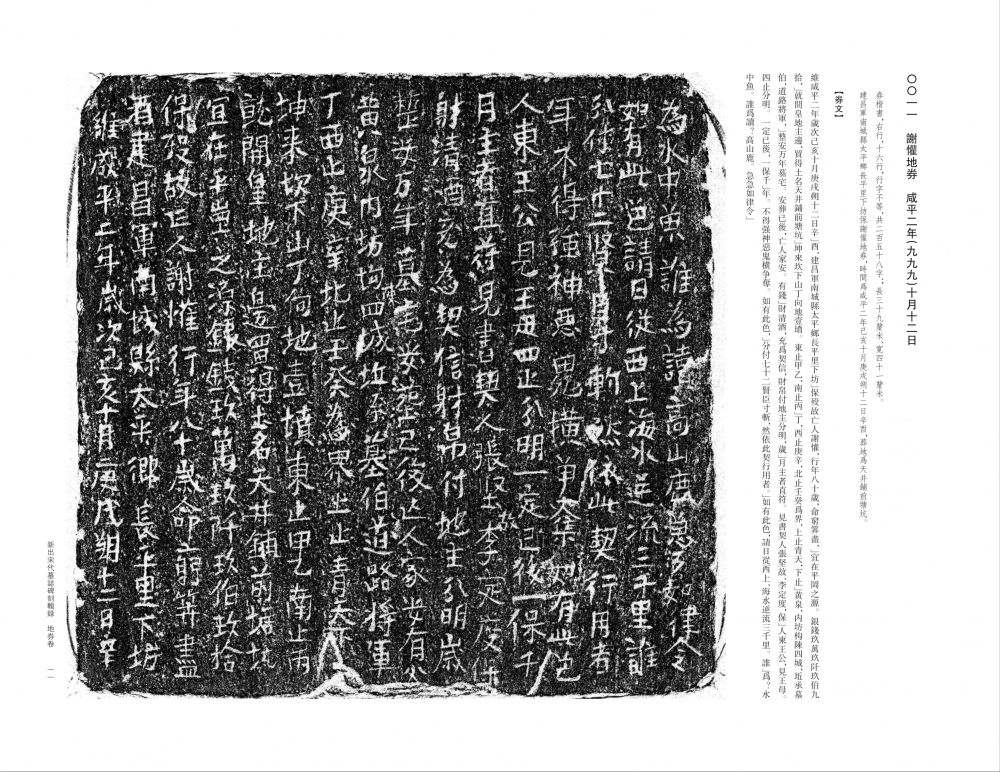 〇〇一一　謝懽地券　咸平二年(九九九)十月十二日
券楷書,右行,十六行,行字不等,共二百五十八字。長三十九釐米,寬四十一釐米。
建昌軍南城縣太平鄉長平里下坊保謝懽地券,時間爲咸平二年己亥十月庚戌朔十二日辛酉,葬地爲天井鋪前塘坑。
【券文】
維咸平二年歲次己亥十月庚戌朔十二日辛」酉,建昌軍南城縣太平鄉長平里下坊」保歿故亡人謝懽,行年八十歲,命窮筭盡,」宜在平罡之源。銀錢玖萬玖阡玖伯九
拾,」就開皇地主邊,買得土名天井鋪前塘坑」坤來坎下山丁向地壹墳。東止甲乙,南止丙」丁,西止庚辛,北止壬癸爲界,上止青天,下止」黄泉,内坊构陳四城,坵承墓
伯、道路將軍,」整安万年墓宅。安葬已後,亡人家安。有錢」財清酒,充爲契信,財帛付地主分明,歲」月主者直符。見書契人張堅故、李定度,保」人東王公,見王母。
四止分明。一定已後,一保千」年。不得强神惡鬼橫争奪。如有此色,」分付七十二賢臣寸斬。然依此契行用者。」如有此色,請日從西上,海水逆流三千里。誰爲?水
中魚。誰爲讀?高山鹿。急急如律令」
維咸平二年歲次己亥十月庚戌朔十二日辛
酉建昌軍南城縣太平鄉長平里下坊
保歿故亡人謝懽行年八十歲命窮筭盡
宜在平之源銀錢玖萬玖阡玖伯玖拾
就開皇地主邊買得土名天井鋪前塘坑
坤来坎下山丁向地壹墳東止甲乙南止丙
丁西止庚辛北止壬癸為界上止青天下止
黄泉内方四城坵墓伯道路將軍
整安万年墓宅安葬已後亡人家安有錢
財清酒充為契信財帛付地主分明歲
月主者直符見書契人張堅故李定度保
人東王公見王母四止分明一定已後一保千
年不得強神惡鬼横爭奪如有此色
分付七十二賢臣寸斬然依此契行用者
如有此色請日從西上海水逆流三千里誰
為水中魚誰為讀高山鹿急急如律令
新出宋代墓誌碑刻輯録　地券卷　一一